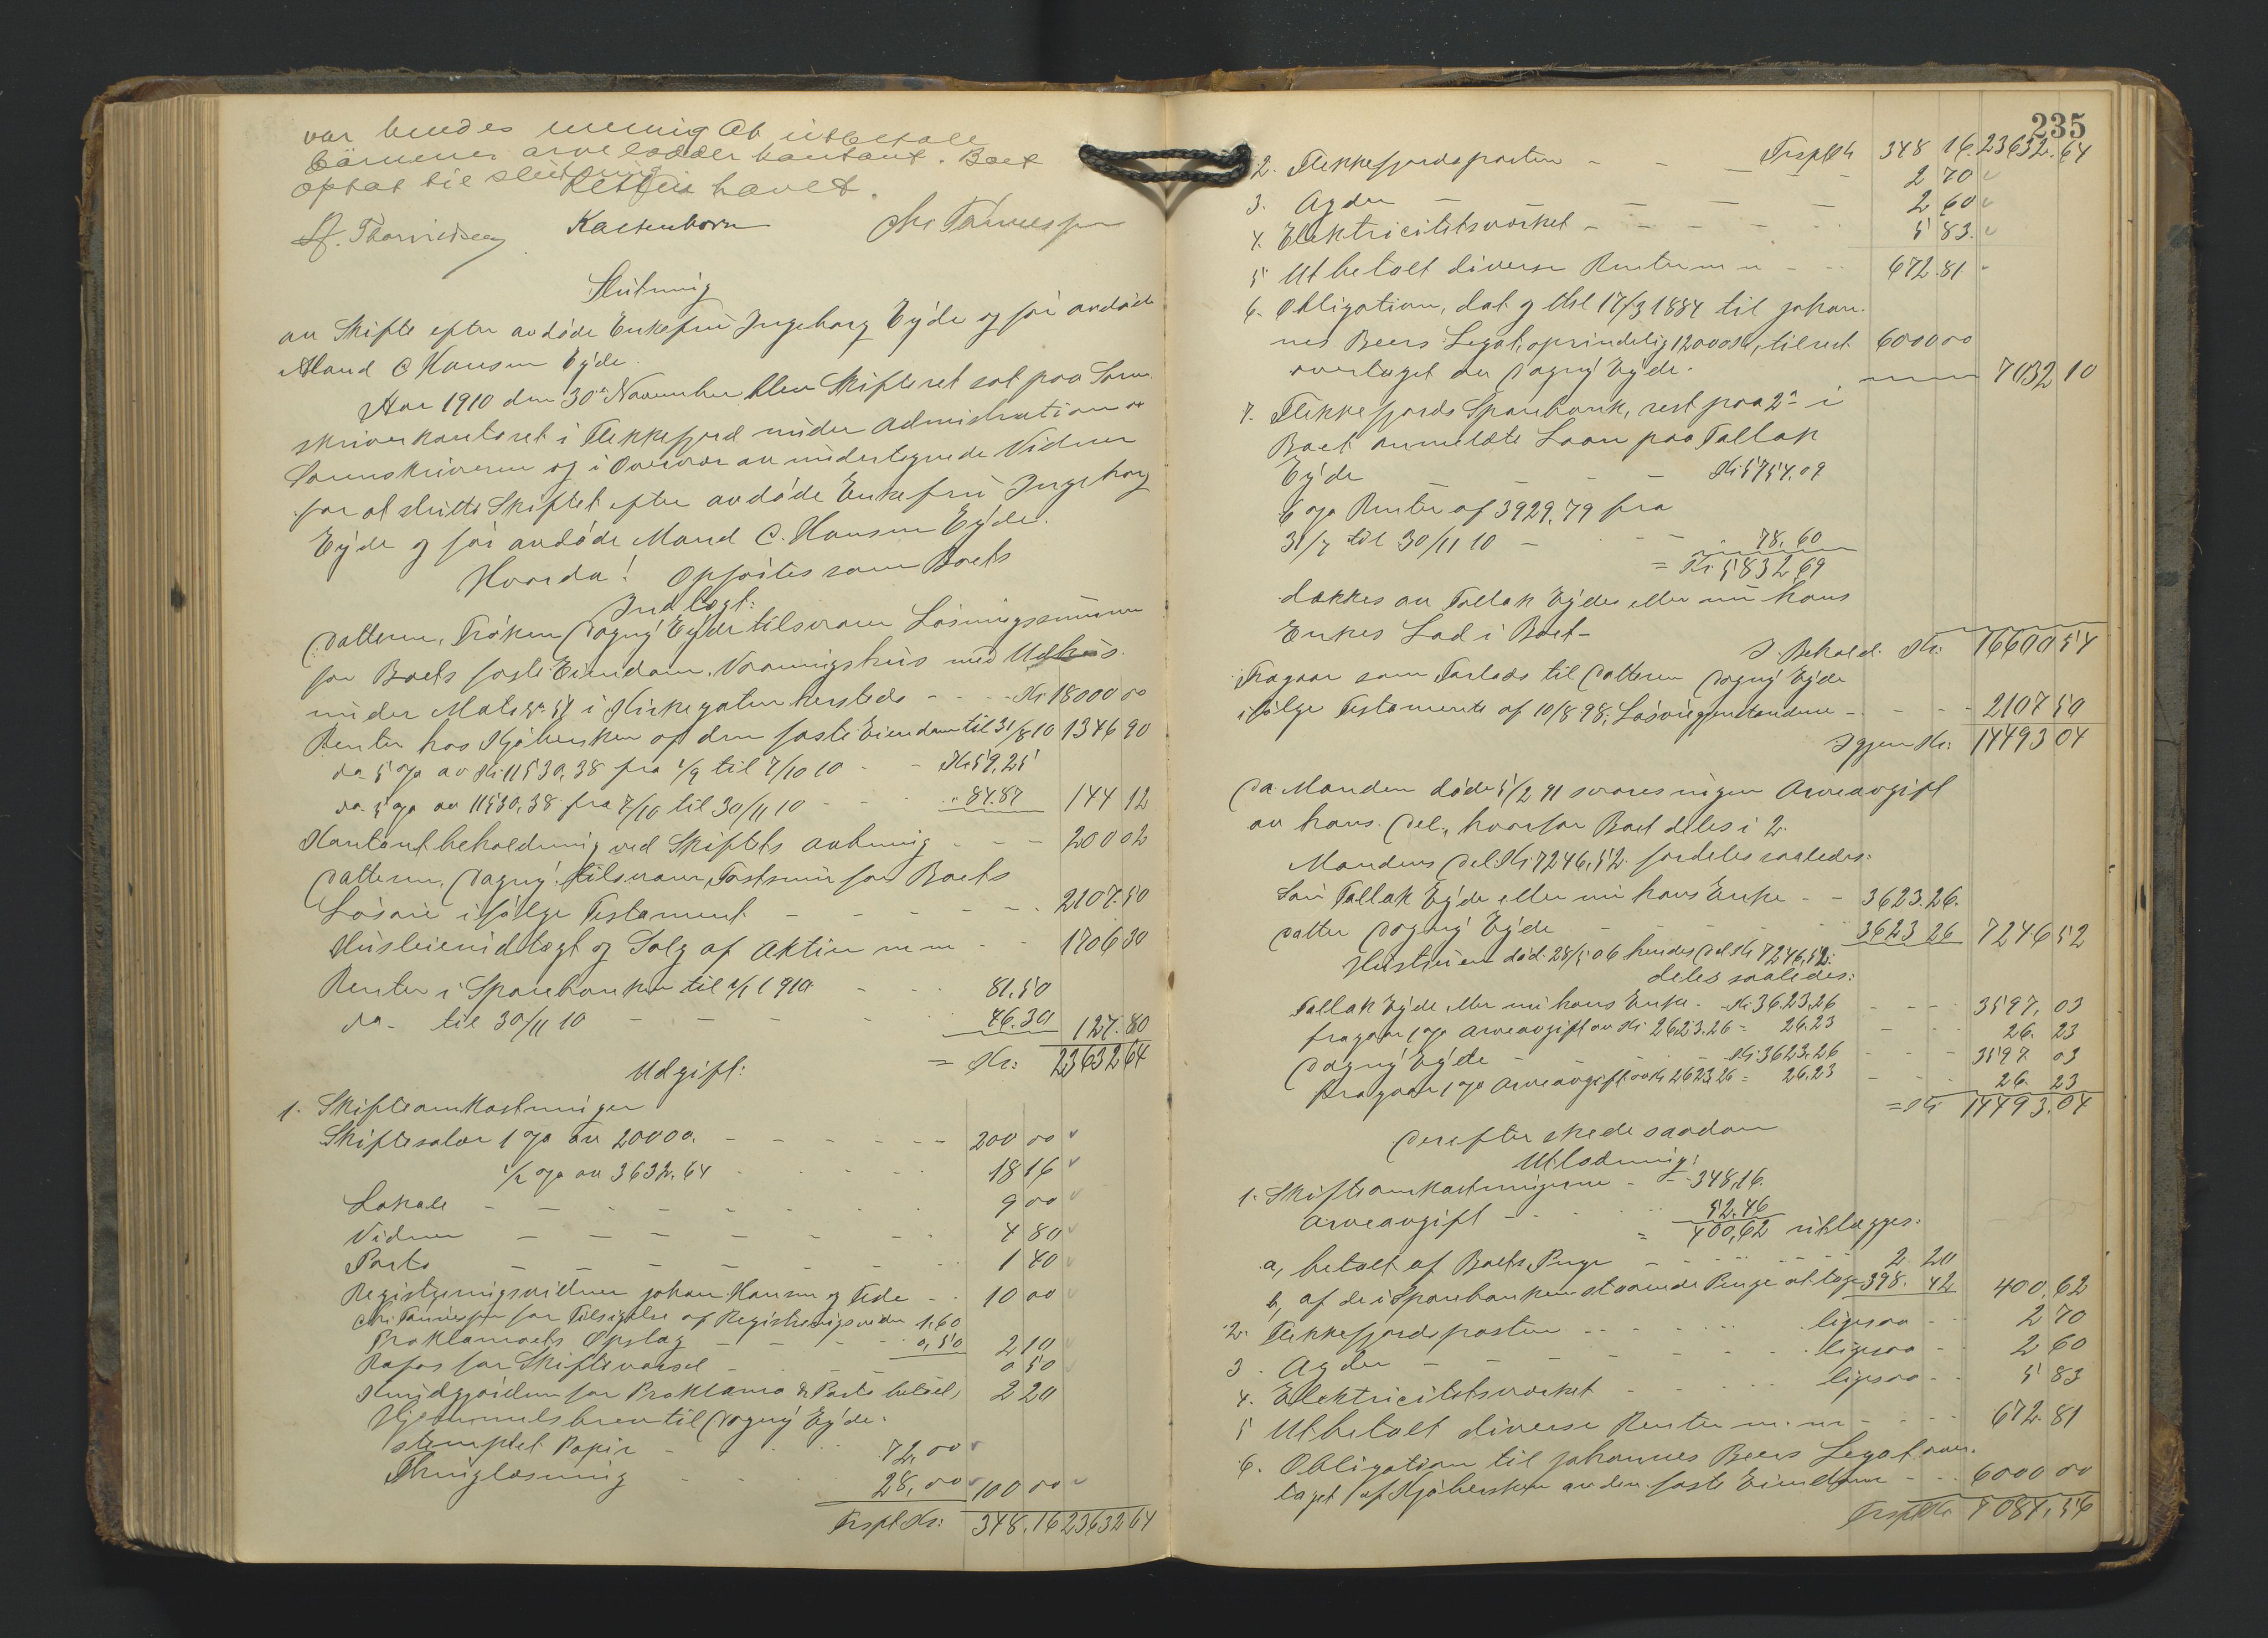 var hendes mening at utbetale
börnenes arvelodder kontant. Boet
optat til slutning.
Retten hævet.
Kaltenborn
Slutning
av Skifte efter avdöde Enkefru Ingeborg Eÿde og för avdöde
Mand C Hansen Eÿde.
Aar 1910 den 30te November blev Skifteret sat paa Soren-
skriverkontoret i Flekkefjord under Administration av
Sorenskriveren og i Overvær av undertegnede Vidner
for at slutte Skiftet efter avdöde Enkefru Ingeborg
Eÿde og för avdöde Mand C. Hansen Eÿde.
Hvorda! Opförtes som Boets
Indtægt:
Datteren, Fröken Dagnÿ Eÿde tilsvarer Lösningssummen
for Boets faste Eiendom, Vaaningshus med Udhus
under Mats No 51 i Kirkegaten hersteds - - Kr 18000 00
Renter hos Kjöbersken af den faste Eiendom til 31/8 10 1346 90
do 5 % av Kr 11530,38 fra 1/9 til 7/10 10 - - Kr 59,25
do 5 % av 11530,38 fra 7/10 til 30/11 10 - - - " 84.87 144 12
Kontantbeholdning ved Skiftets aabning - - - 200 02
Datteren, Dagnÿ tilsvarer Takstsum for Boets
Lösöre ifölge Testament - - - - - 2107.50
Husleieindtægt og Salg af Aktier m m - - 1706 30
Renter i Sparebanken til 1/1 1910 - - - 81,50
do - til 30/11 10 - - - - 46.30 127.80
= Kr: 23632 64
Udgift:
1. Skifteomkostninger
Skiftesalær 1 % av 20000. - - - - - - 200 00
1/2 % av 3632.64 - - - - - 18 16
Lokale - - - - - - - 9 00
Vidner - - - - - - - 4 80
Porto - - - - - - - 1 40
Registreringsvidner Johan Hansen og Fede - - 10 00
Chr. Tönnessen for Tilsigelse af Registreringsvidner 1,60
Proklamaets Opslag - - - - 0,50 2 10
Rafos for Skiftevarsel - - - - 0 50
Kundgjörelsen for Proklama & Porto betalt, 2 20
Hjemmelsbrev til Dagnÿ Eÿde.
stemplet Papir - - - - 72,00
Thinglæsning - - - - 28,00 100 00
Trspt Kr: 348.16 23632 64
235
Trspt Kr 348 16. 23632.64
2. Flekkefjordsposten - - - - - 2 70
3. Agder - - - - - 2 60
4. Elektricitetsværket - - - - - 5 83.
5 Utbetalt diverse Renter m m - - - 672.81
6. Obligation, dat og thl 17/3 1884 til Johan-
nes Beers Legat, oprindelig 12000 Kr, tilrest 6000 00
overtaget av Dagnÿ Eÿde. 7032 10
7. Flekkefjords Sparebank, rest paa 2de i
Boet anmeldte Laan paa Tallak
Eÿde - - - Kr 5754.09
6 % Renter af 3929,79 fra
31/7 til 30/11 10 - - - - 78,60
= Kr 5832 69
dækkes av Tallak Eÿdes eller nu hans
Enkes Lod i Boet -
I Behold. Kr: 16600 54
Fragaar som Forlods til Datteren Dagnÿ Eÿde
ifölge Testamente af 10/8 98, Lösöregjenstandene - - - 2107 50
Igjen Kr: 14493 04
Da Manden döde 5/2 91 svares ingen Arveavgift
av hans Del, hvorfor Boet deles i 2.
Mandens Del Kr 7246,52 fordeles saaledes:
Sön Tallak Eÿde eller nu hans Enke - - 3623.26.
Datter Dagnÿ Eÿde - - - - 3623 26 7246 52
Hustruen död 28/5 06 hendes Del Kr 7246,52:
deles saaledes:
Tallak Eÿde eller nu hans Enke - Kr 3623,26 - - - 3597, 03
fragaar 1 % Arveavgift av Kr 2623.26 = 26.23 - - - 26. 23
Dagnÿ Eÿde - - - Kr 3623,26 - - - 3597. 03
fragaar 1 % Arveavgift av Kr 2623 26 = 26,23 - - - 26. 23
= Kr 14493.04
Derefter skede saadan
Utlodning:
1. Skifteomkostningerne - - 348,16.
Arveavgift - - - 52.46
= 400,62 utlægges:
a, betalt af Boets Penge - - - - 2 20
b, af de i Sparebanken staaende Penge at tage 398. 42 400,62
2. Flekkefjordsposten - - - - - ligesaa - - 2 70
3. Agder - - - - - - ligesaa - - 2 60
4. Elektricitetsværket - - - - ligesaa - - 5 83
5 Utbetalt diverse Renter m. m - - - - 672.81
6. Obligation til Johannes Beers Legat over-
taget af Kjöbersken av den faste Eiendom - - 6000 00
Trspt Kr 7084,56